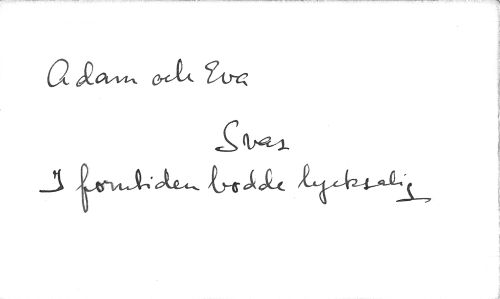 Adam och Eva
Svar
I forntiden bodde lycksalig